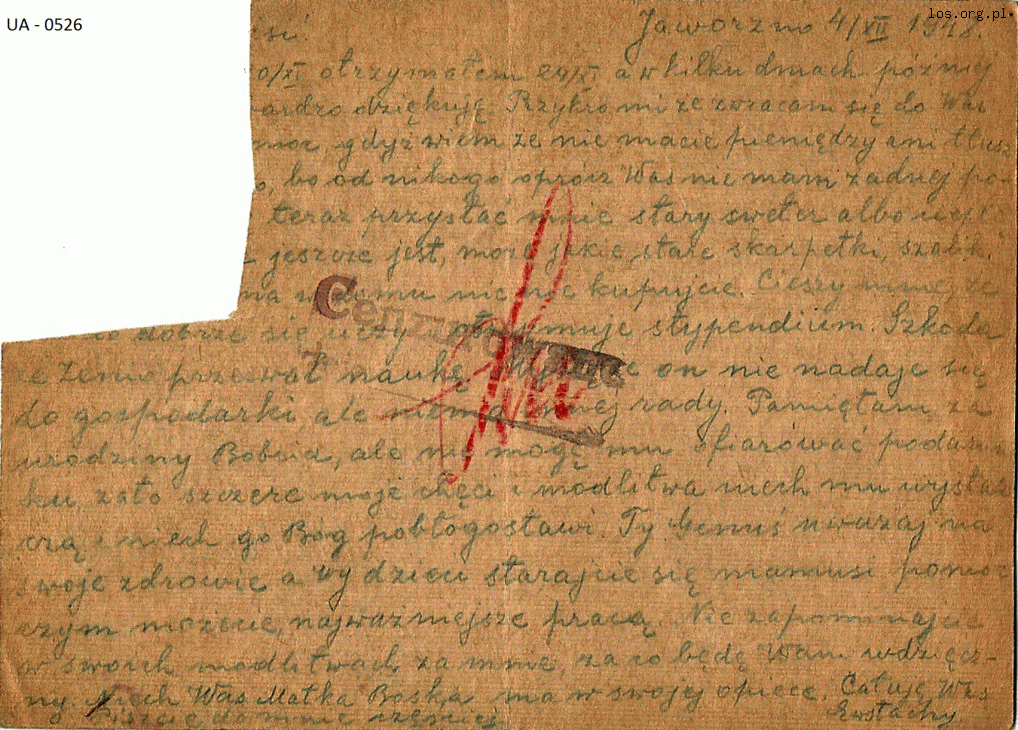 UA - 0526
los.org.pl
Jaworzno 4/XII 1948.
0/XI otrzymałem 29/XI a w kilku dniach później
bardzo dziękuję. Przykro mi że zwracam się do Was
moc, gdyż wiem że nie macie pieniędzy ani tłusz
o, bo od nikogo oprócz Was nie mam żadnej po-
teraz przysłać mnie stary sweter albo
jeszcze jest, może jakie stare skarpetki, szalik.
nic nie kupujcie. Cieszy mnie, że
dobrze się uczy i otrzymuje stypendium. Szkoda
że Zeniu przerwał naukę. Myślę że on nie nadaje się
do gospodarki ale niema innej rady. Pamiętam za
urodziny Bobcia, ale nie mogę mu ofiarować podarun
ku zato szczere moje chęci i modlitwa niech mu wystar
czą i niech go Bóg pobłogosławi. Ty Genuś uważaj na
swoje zdrowie a wy dzieci starajcie się mamusi pomóc
czym możecie, najważniejsze pracą. Nie zapominajcie
w swoich modlitwach za mnie, za co będę Wam wdzięcz-
ny. Niech Was Matka Boska ma w swojej opiece. Całuję Was
Piszcie do mnie częściej Eustachy
Cenzurowane